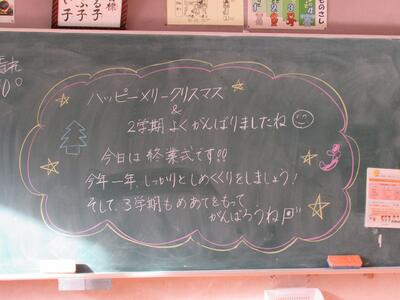 ハッピーメリークリスマス
&
2学期 よくがんばりましたね
今日は 終業式です!!
今年一年、しっかりとしめくくりをしましょう!
そして、3学期もめあてをもって
がんばろうね
ものさし